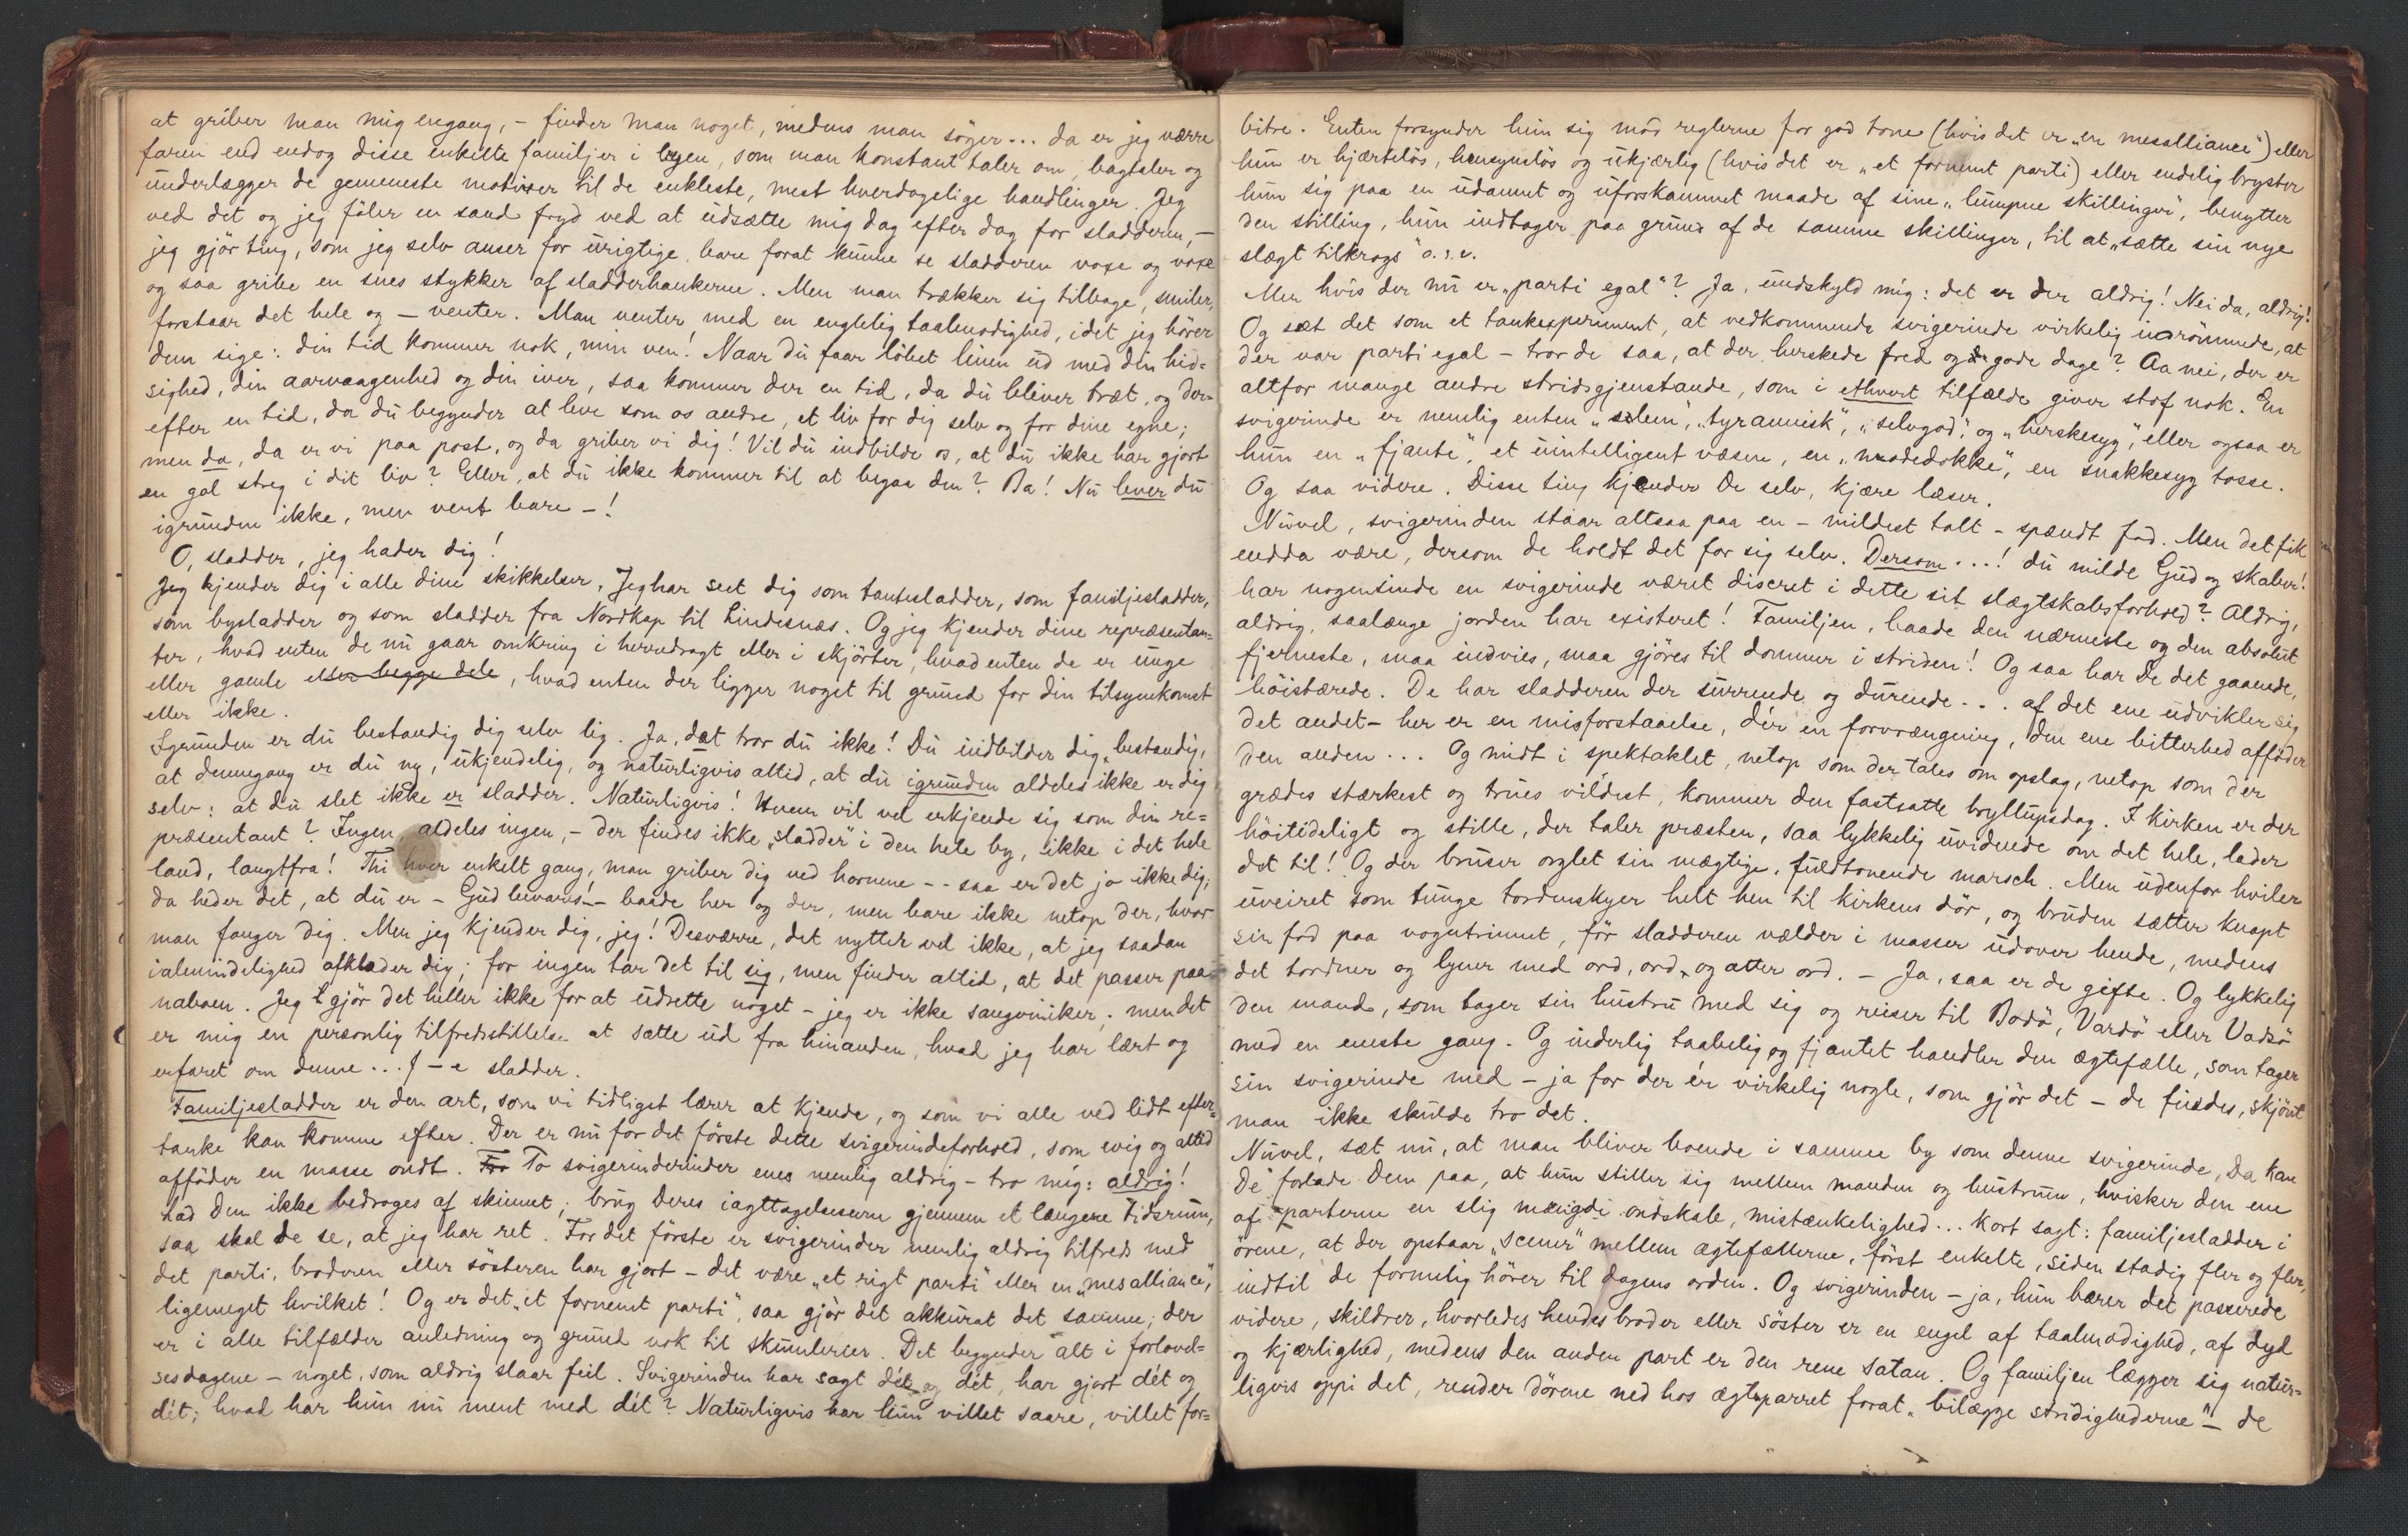 at griber man mig engang, – finder man noget, medens man söger... da er jeg værre
faren end endog disse enkelte familjer i byen, som man konstant taler om, bagtaler og
underlægger de gemeneste motiver til de enkleste, mest hverdagslige handlinger. Jeg
ved det og jeg föler en sand fryd ved at udsætte mig dag efter dag for sladderen, –
jeg gjör ting, som jeg selv anser for urigtige bare forat kunne se sladderen voxe og voxe
og saa gribe en snes stykker af sladderhankerne. Men man trækker sig tilbage, smiler,
forstaar det hele og – venter. Man venter med en englelig taalmodighed, idet jeg hörer
dem sige: din tid kommer nok, min ven! Naar du faar löbet linen ud med din hid=
sighed, din aarvaagenhed og din iver, saa kommer der en tid, da du bliver træt, og der=
efter en tid, da du begynder at leve som os andre, et liv for dig selv og for dine egne;
men da, da er vi paa post, og da griber vi dig! Vil du indbilde os, at du ikke har gjort
en gal streg i dit liv? Eller, at du ikke kommer til at begaa den? Ba! Nu lever du
igrunden ikke, men vent bare –!
O, sladder, jeg hader dig!
Jeg kjender dig i alle dine skikkelser. Jeg har seet dig som tantesladder, som familjesladder,
som bysladder og som sladder fra Nordkap til Lindesnæs. Og jeg kjender dine repræsentan=
ter, hvad enten de nu gaar omkring i herredragt eller i skjörter, hvad enten de er unge
eller gamle eller begge dele, hvad enten der ligger noget til grund for din tilsynkomst
eller ikke.
Igrunden er du bestandig dig selv lig. Ja, dæt tror du ikke! Du indbilder dig, bestandig,
at dennegang er du ny, ukjendelig, og naturligvis altid, at du igrunden aldeles ikke er dig
selv: at du slet ikke er sladder. Naturligvis! Hvem vil vel erkjende sig som din re=
præsentant? Ingen, aldeles ingen, – der findes ikke „sladder“ i den hele by, ikke i det hele
land, langtfra! Thi hver enkelt gang, man griber dig ved hornene -- saa er det jo ikke dig;
da heder det, at du er – Gud bevares! – baade her og der, men bare ikke netop der, hvor
man fanger dig. Men jeg kjender dig, jeg! Desværre, det nytter vel ikke, at jeg saadan
ialmindelighed afklæder dig; for ingen tar det til sig, men finder altid, at det passer paa
naboen. Jeg gjör det heller ikke for at udrette noget – jeg er ikke sangviniker; men det
er mig en personlig tilfredsstillelse at sætte ud fra hinanden, hvad jeg har lært og
erfaret om denne ... f – e sladder.
Familjesladder er den art, som vi tidligst lærer at kjende, og som vi alle ved lidt efter=
tanke kan komme efter. Der er nu for det förste dette svigerindeforhold, som evig og altid
afföder en masse ondt. For To svigerinderinder enes nemlig aldrig – tro mig: aldrig!
Lad Dem ikke bedrages af skinnet; brug Deres iagttagelsesevne gjennem et længere tidsrum,
saa skal De se, at jeg har ret. For det förste er svigerinder nemlig aldrig tilfreds med
det parti, broderen eller sösteren har gjort – det være „et rigt parti“ eller en „mesalliance“,
ligemeget hvilket! Og er det „et fornemt parti“, saa gjör det akkurat det samme; der
er i alle tilfælder anledning og grund nok til skumlerier. Det begynder alt i forlovel=
sesdagene – noget, som aldrig slaar feil. Svigerinden har sagt dét og dét, har gjort dét og
dét; hvad har hun nu ment med dét? Naturligvis har hun villet saare, villet for=
bitre. Enten forsynder hun sig mod reglerne for god tone (hvis det er „en mesalliance“) eller
hun er hjærtelös, hensynslös og ukjærlig (hvis det er „et fornemt parti) eller endelig bryster
hun sig paa en udannet og uforskammet maade af sine „lumpne skillinger“, benytter
den stilling, hun indtager paa grund af de samme skillinger, til at „sætte sin nye
slægt tilkrogs“ o.s.v.
Men hvis der nu er „parti egal“? Ja, undskyld mig: det er der aldrig! Nei da, aldrig!
Og sæt det som et tankexperiment, at vedkommende svigerinde virkelig indrömmede, at
der var parti egal – tror de saa, at der herskede fred og gode dage? Aa nei, der er
altfor mange andre stridsgjenstande, som i ethvert tilfælde giver stof nok. En
svigerinde er nemlig enten „slem“, „tyrannisk“, „selvgod“ og „herskesyg“, eller ogsaa er
hun en „fjante“, et uintelligent væsen, en „modedokke“, en snakkesyg tosse.
Og saa videre. Disse ting kjender De selv, kjære læser.
Nuvel, svigerinden staar altsaa paa en – mildest talt – spændt fod. Men det fik
endda være, dersom de holdt det for sig selv. Dersom ...! du milde Gud og skaber!
har nogensinde en svigerinde været discret i dette sit slægtskabsforhold? Aldrig,
aldrig, saalænge jorden har existeret! Familjen, baade den nærmeste og den absolut
fjerneste, maa indvies, maa gjöres til dommer i striden! Og saa har De det gaaende,
höistærede. De har sladderen der surrende og durende ... af det ene udvikler sig
det andet – her er en misforstaaelse, dér en forvrængning, den ene bitterhed afföder
den anden ... Og midt i spektaklet, netop som der tales om opslag, netop som der
grædes stærkest og trues vildest, kommer den fastsatte bryllupsdag. I kirken er der
höitideligt og stille, der taler præsten, saa lykkelig uvidende om det hele, lader
det til! Og der bruser orglet sin mægtige, fuldtonende marsch. Men udenfor hviler
uveiret som tunge tordenskyer helt hen til kirkens dör, og bruden sætter knapt
sin fod paa vogntrinnet, för sladderen vælder i masser udover hende, medens
det tordner og lyner med ord, ord, og atter ord. – Ja, saa er de gifte. Og lykkelig
den mand, som tager sin hustru med sig og reiser til Bodö, Vardö eller Vadsö
med en eneste gang. Og inderlig taabelig og fjantet handler den ægtefælle, som tager
sin svigerinde med – ja for der ér virkelig nogle, som gjör det – de findes, skjönt
man ikke skulde tro det.
Nuvel, sæt nu, at man bliver boende i samme by som denne svigerinde, Da kan
De forlade Dem paa, at hun stiller sig mellem manden og hustruen, hvisker den ene
af parterne en slig mængde ondskab, mistænkelighed ... kort sagt: familjesladder i
örene, at der opstaar „scener“ mellem ægtefællerne, först enkelte, siden stadig fler og fler,
indtil de formelig hörer til dagens orden. Og svigerinden – ja, hun bærer det passerede
videre, skildrer, hvorledes hendes broder eller söster er en engel af taalmodighed, af dyd
og kjærlighed, medens den anden part er den rene satan. Og familjen lægger sig natur=
ligvis oppi det, render dörene ned hos ægteparret forat „bilægge stridighederne“ – de